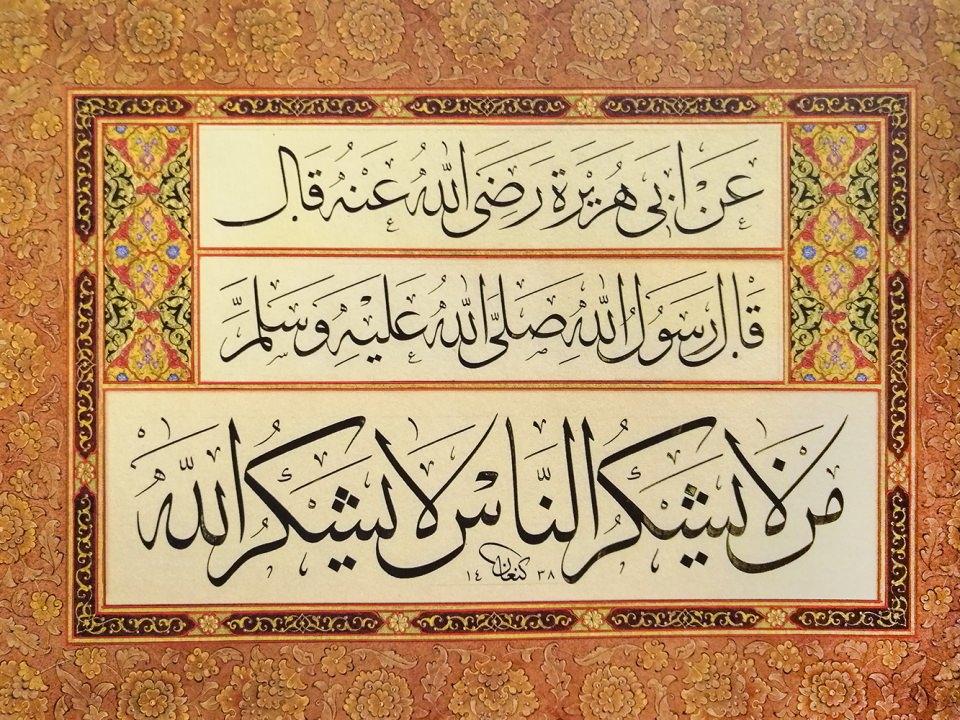 عَنْ اَبِى هُرَيْرَةَ رَضِىَ اللّٰهُ عَنْهُ قَالَ
قَالَ رَسُولُ اللّٰهِ صَلَّى اللّٰهُ عَلَيْهِ وَسَلَّمَ
مَنْ لَا يَشْكُرُ النَّاسَ لَا يَشْكُرُ اللّٰهَ
كنعان ١٤٣٨